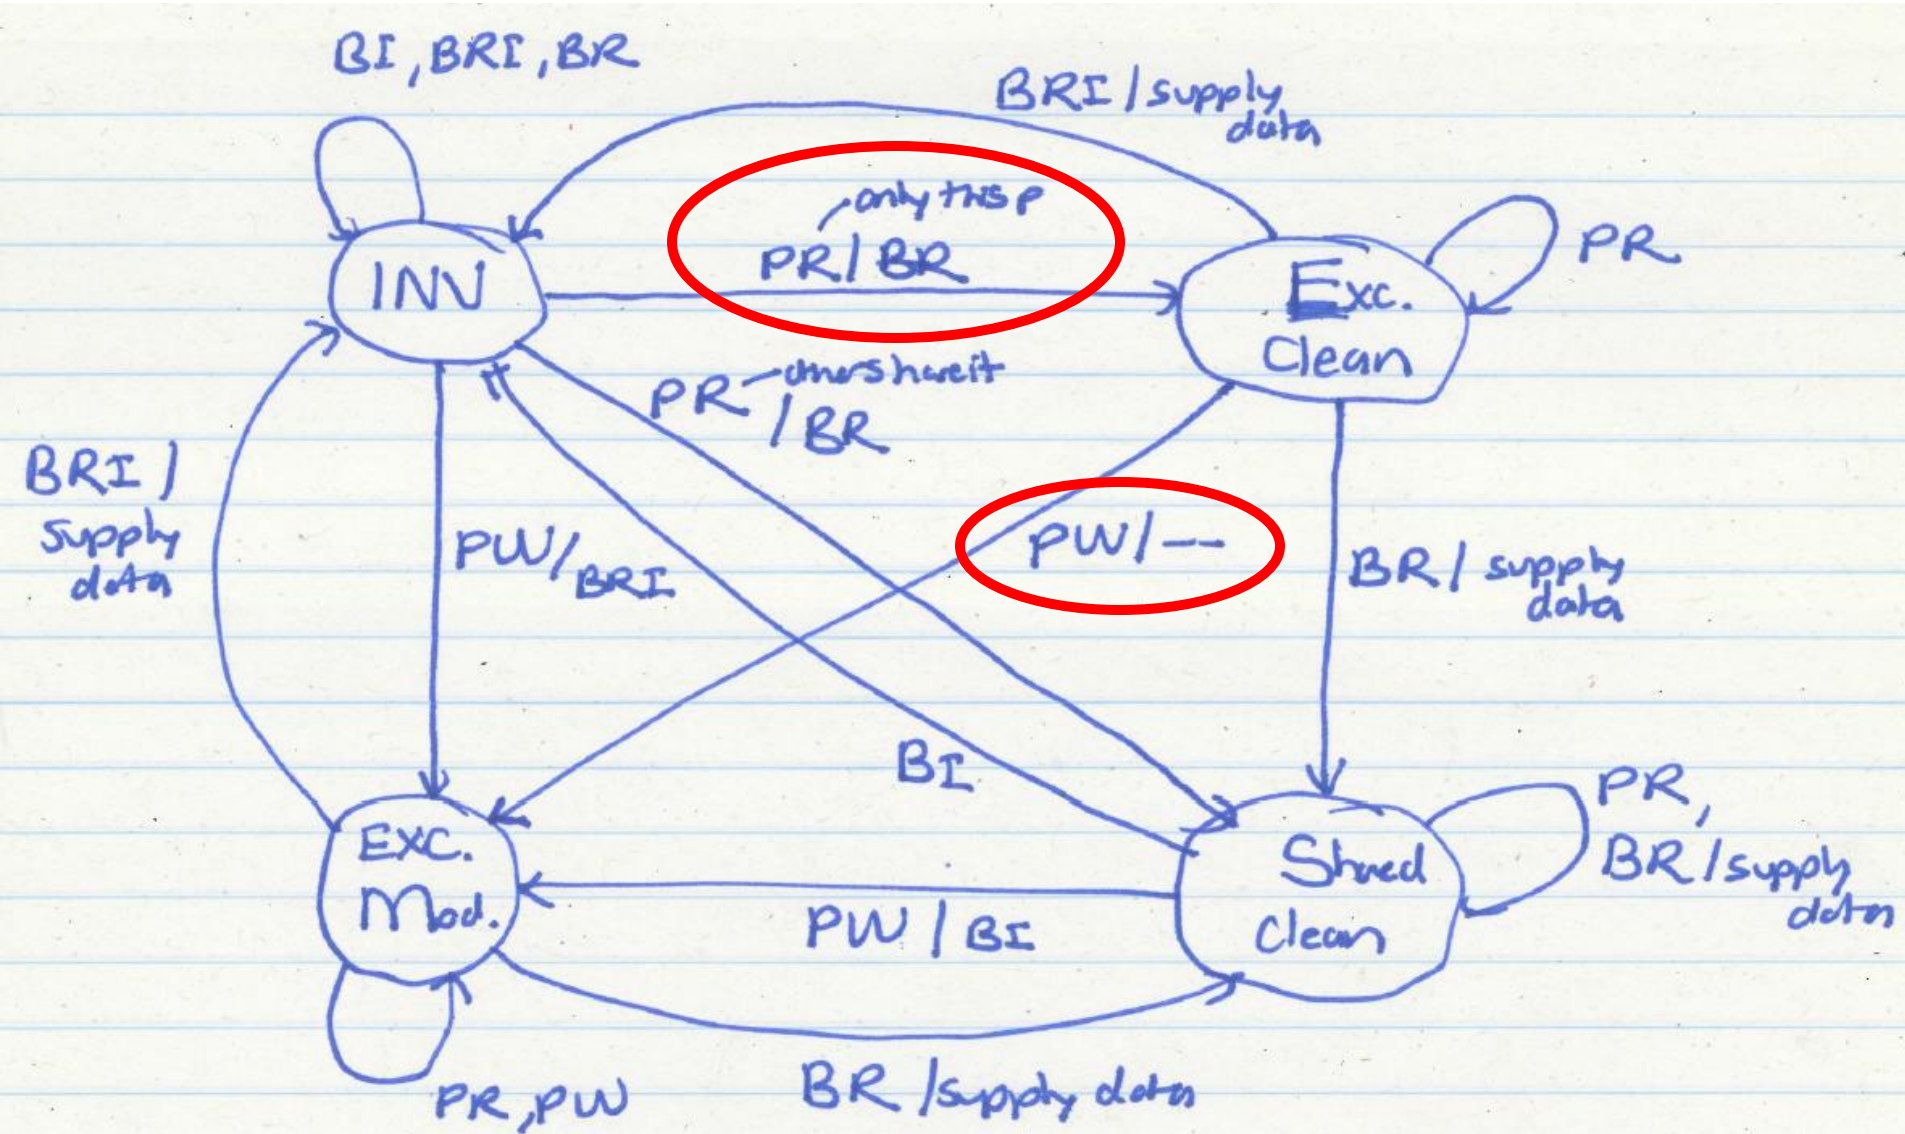 BI, BRI, BR
BRI / supply
data
only this p
PR / BR
PR
INV
Exc.
Clean
PR
others have it
/ BR
BRI /
supply
data
PW /
BRI
PW / --
BR / supply
data
BI
PR,
BR / supply
data
Exc.
Mod.
Shared
Clean
PW / BI
PR, PW
BR / supply data